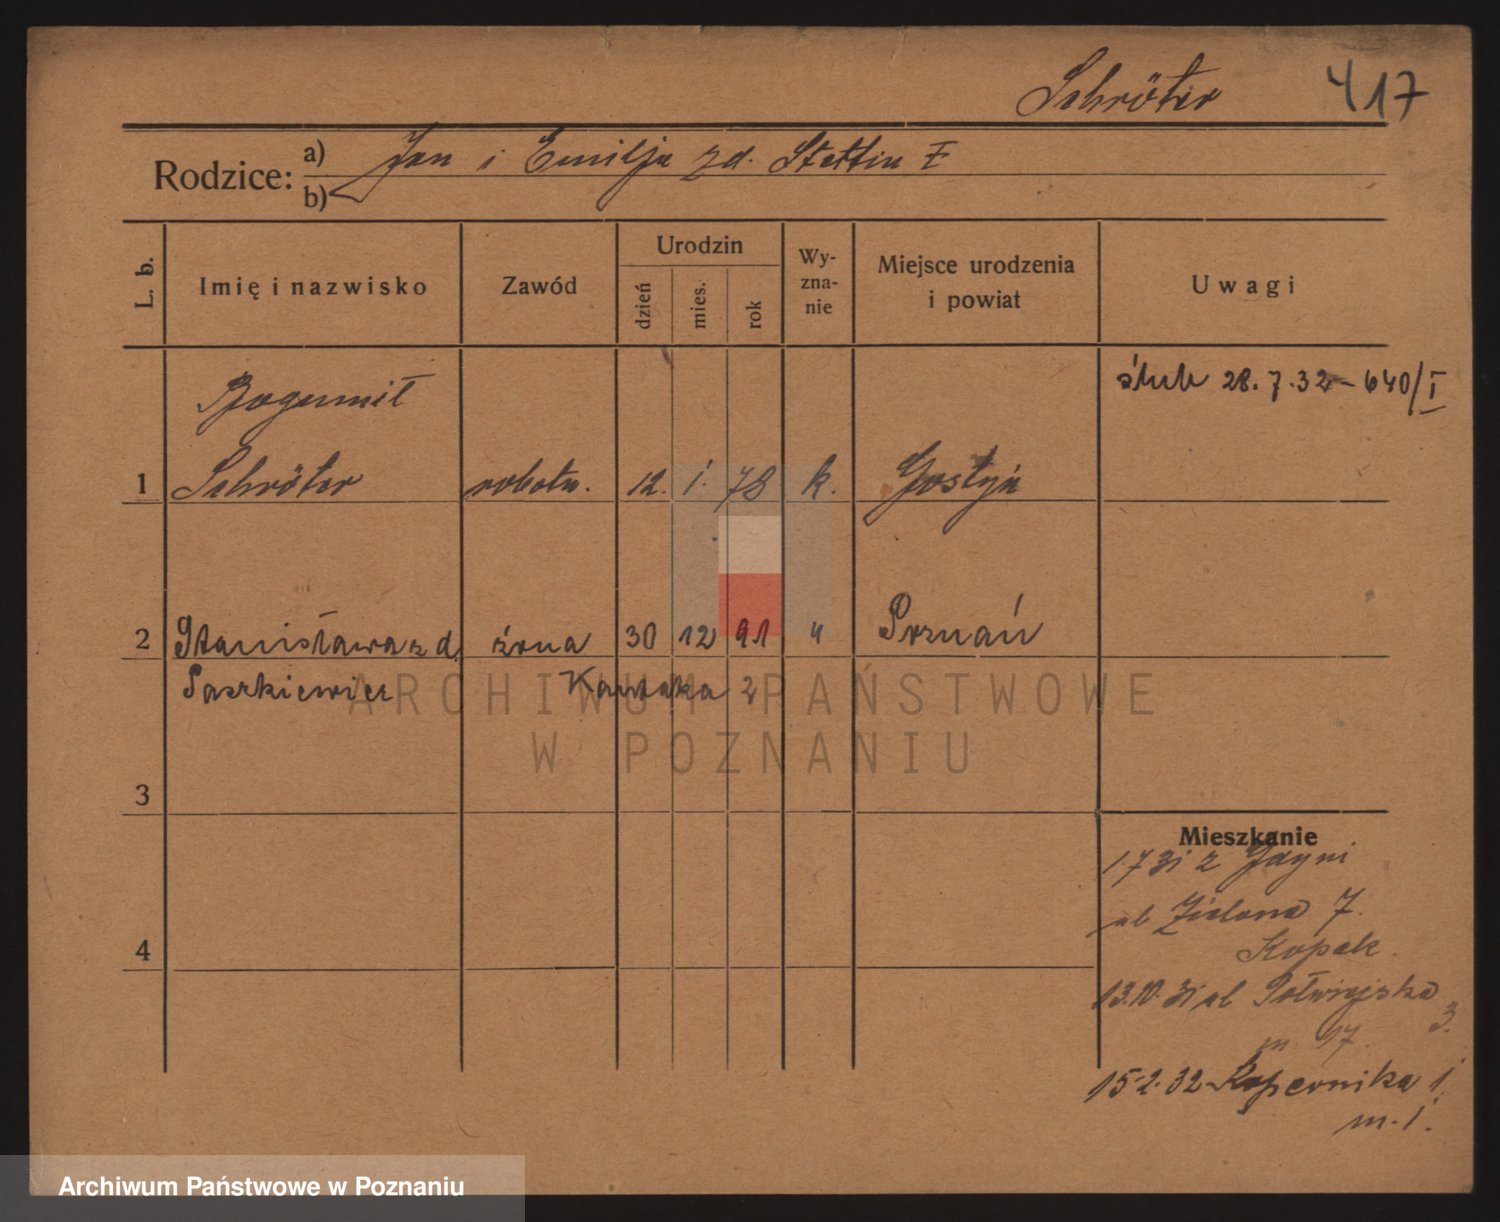 Schröter 417
Rodzice: a) Jan i Emilja zd. Stettin
b)
L. b. Imię i nazwisko Zawód Urodzin dzień mies. rok Wy-zna-nie Miejsce urodzenia i powiat Uwagi
Bogumił ślub 28.7.32 – 640/I
1 Schröter robotn. 12. 1. 78 k. Gostyń
2 Stanisława zd. żona 30 12 91 " Poznań
Paszkiewicz 2
ARCHIWUM PAŃSTWOWE
W POZNANIU
3
Mieszkanie
1.7 31 z Gdyni
ul. Zielona 7.
Kopek
4
13.10.31 ul. Półwiejska 3.
m. 17.
15.2.32 Kopernika 1
m. 1.
Archiwum Państwowe w Poznaniu